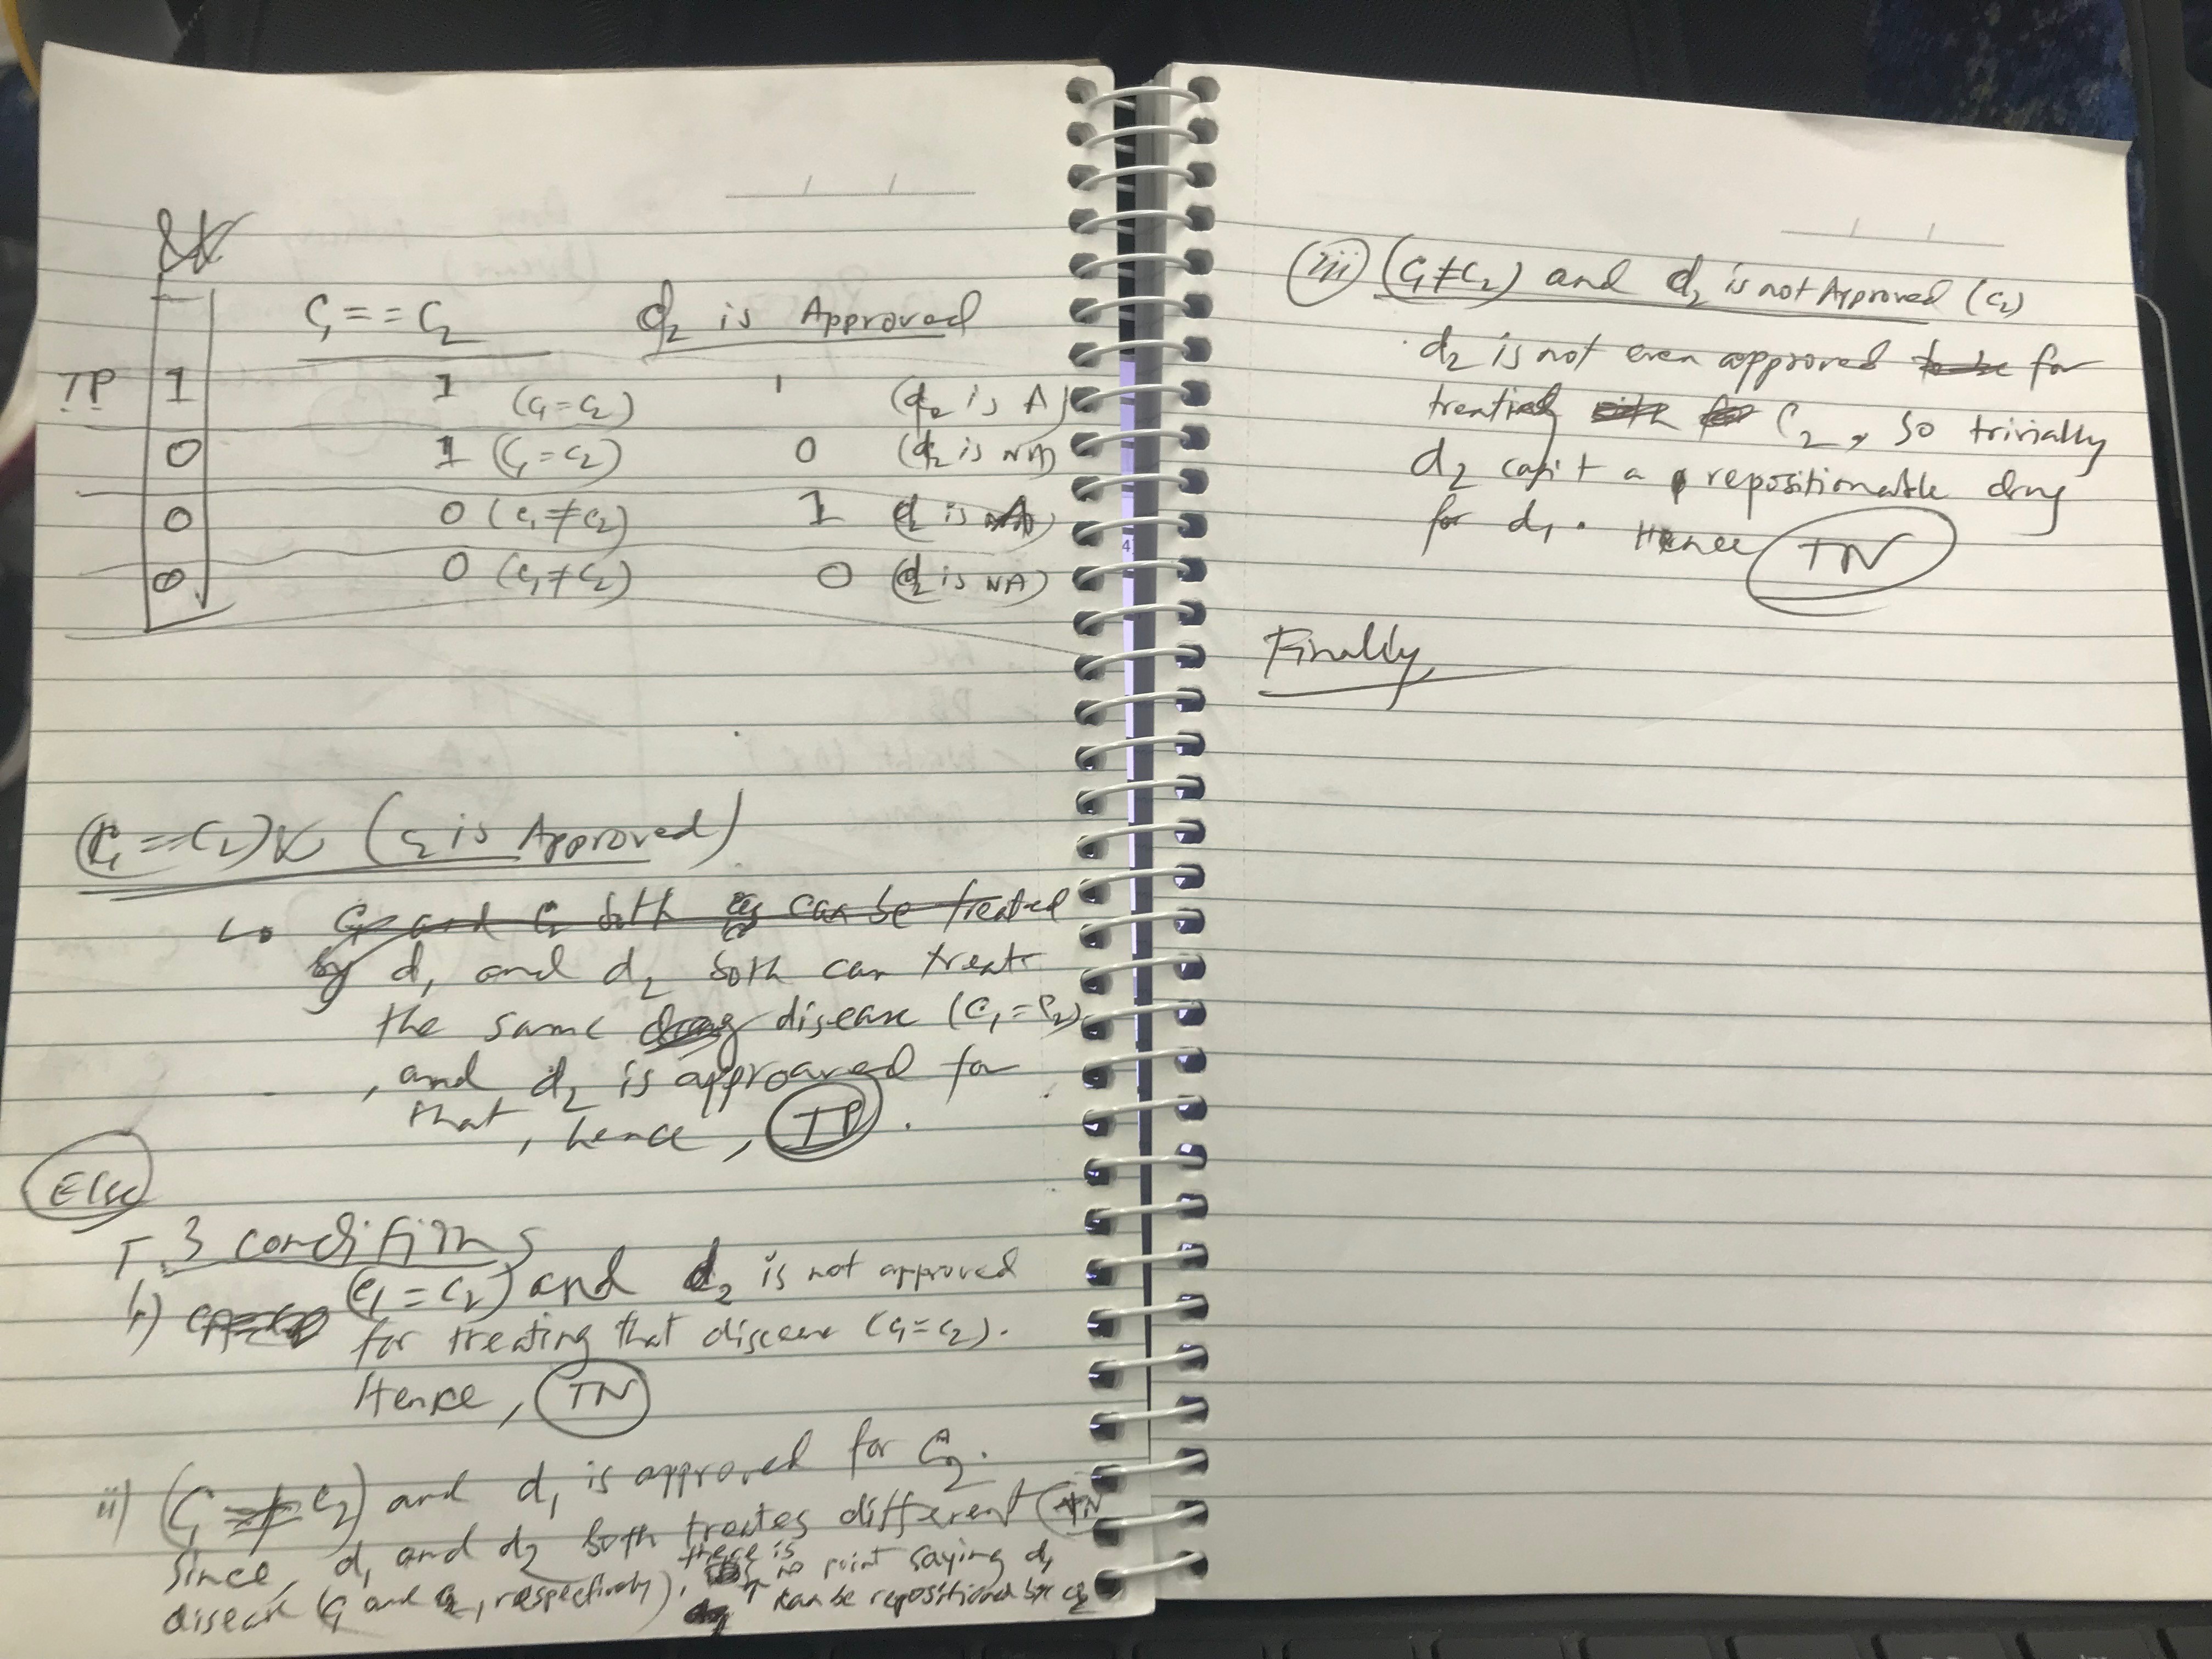 C1 == C2 d2 is Approved
TP 1 1 (C1 = C2) 1 (d2 is A)
0 1 (C1 = C2) 0 (d2 is NA)
0 0 (C1 ≠ C2) 1 (d2 is A)
0 0 (C1 ≠ C2) 0 (d2 is NA)
(C1 == C2) & (c2 is Approved)
↳ C1 and C2 both can be treated
by d1 and d2 both can treat
the same drug disease (C1 = C2)
, and d2 is approaved for
that, hence, TP.
Else
3 conditions
i) (C1 = C2) and d2 is not approved
for treating that disease (C1 = C2).
Hence, TN
ii) (C1 ≠ C2) and d1 is approved for C2.
Since, d1 and d2 both treates different TN
disease (C1 and C2, respectively), there is no point saying d1
can be repositioned by d2
iii) (C1 ≠ C2) and d2 is not Approved (C2)
d2 is not even approved to be for
treating C2, so trivially
d2 can't a repositionable drug
for d1. Hence TN
Finally,